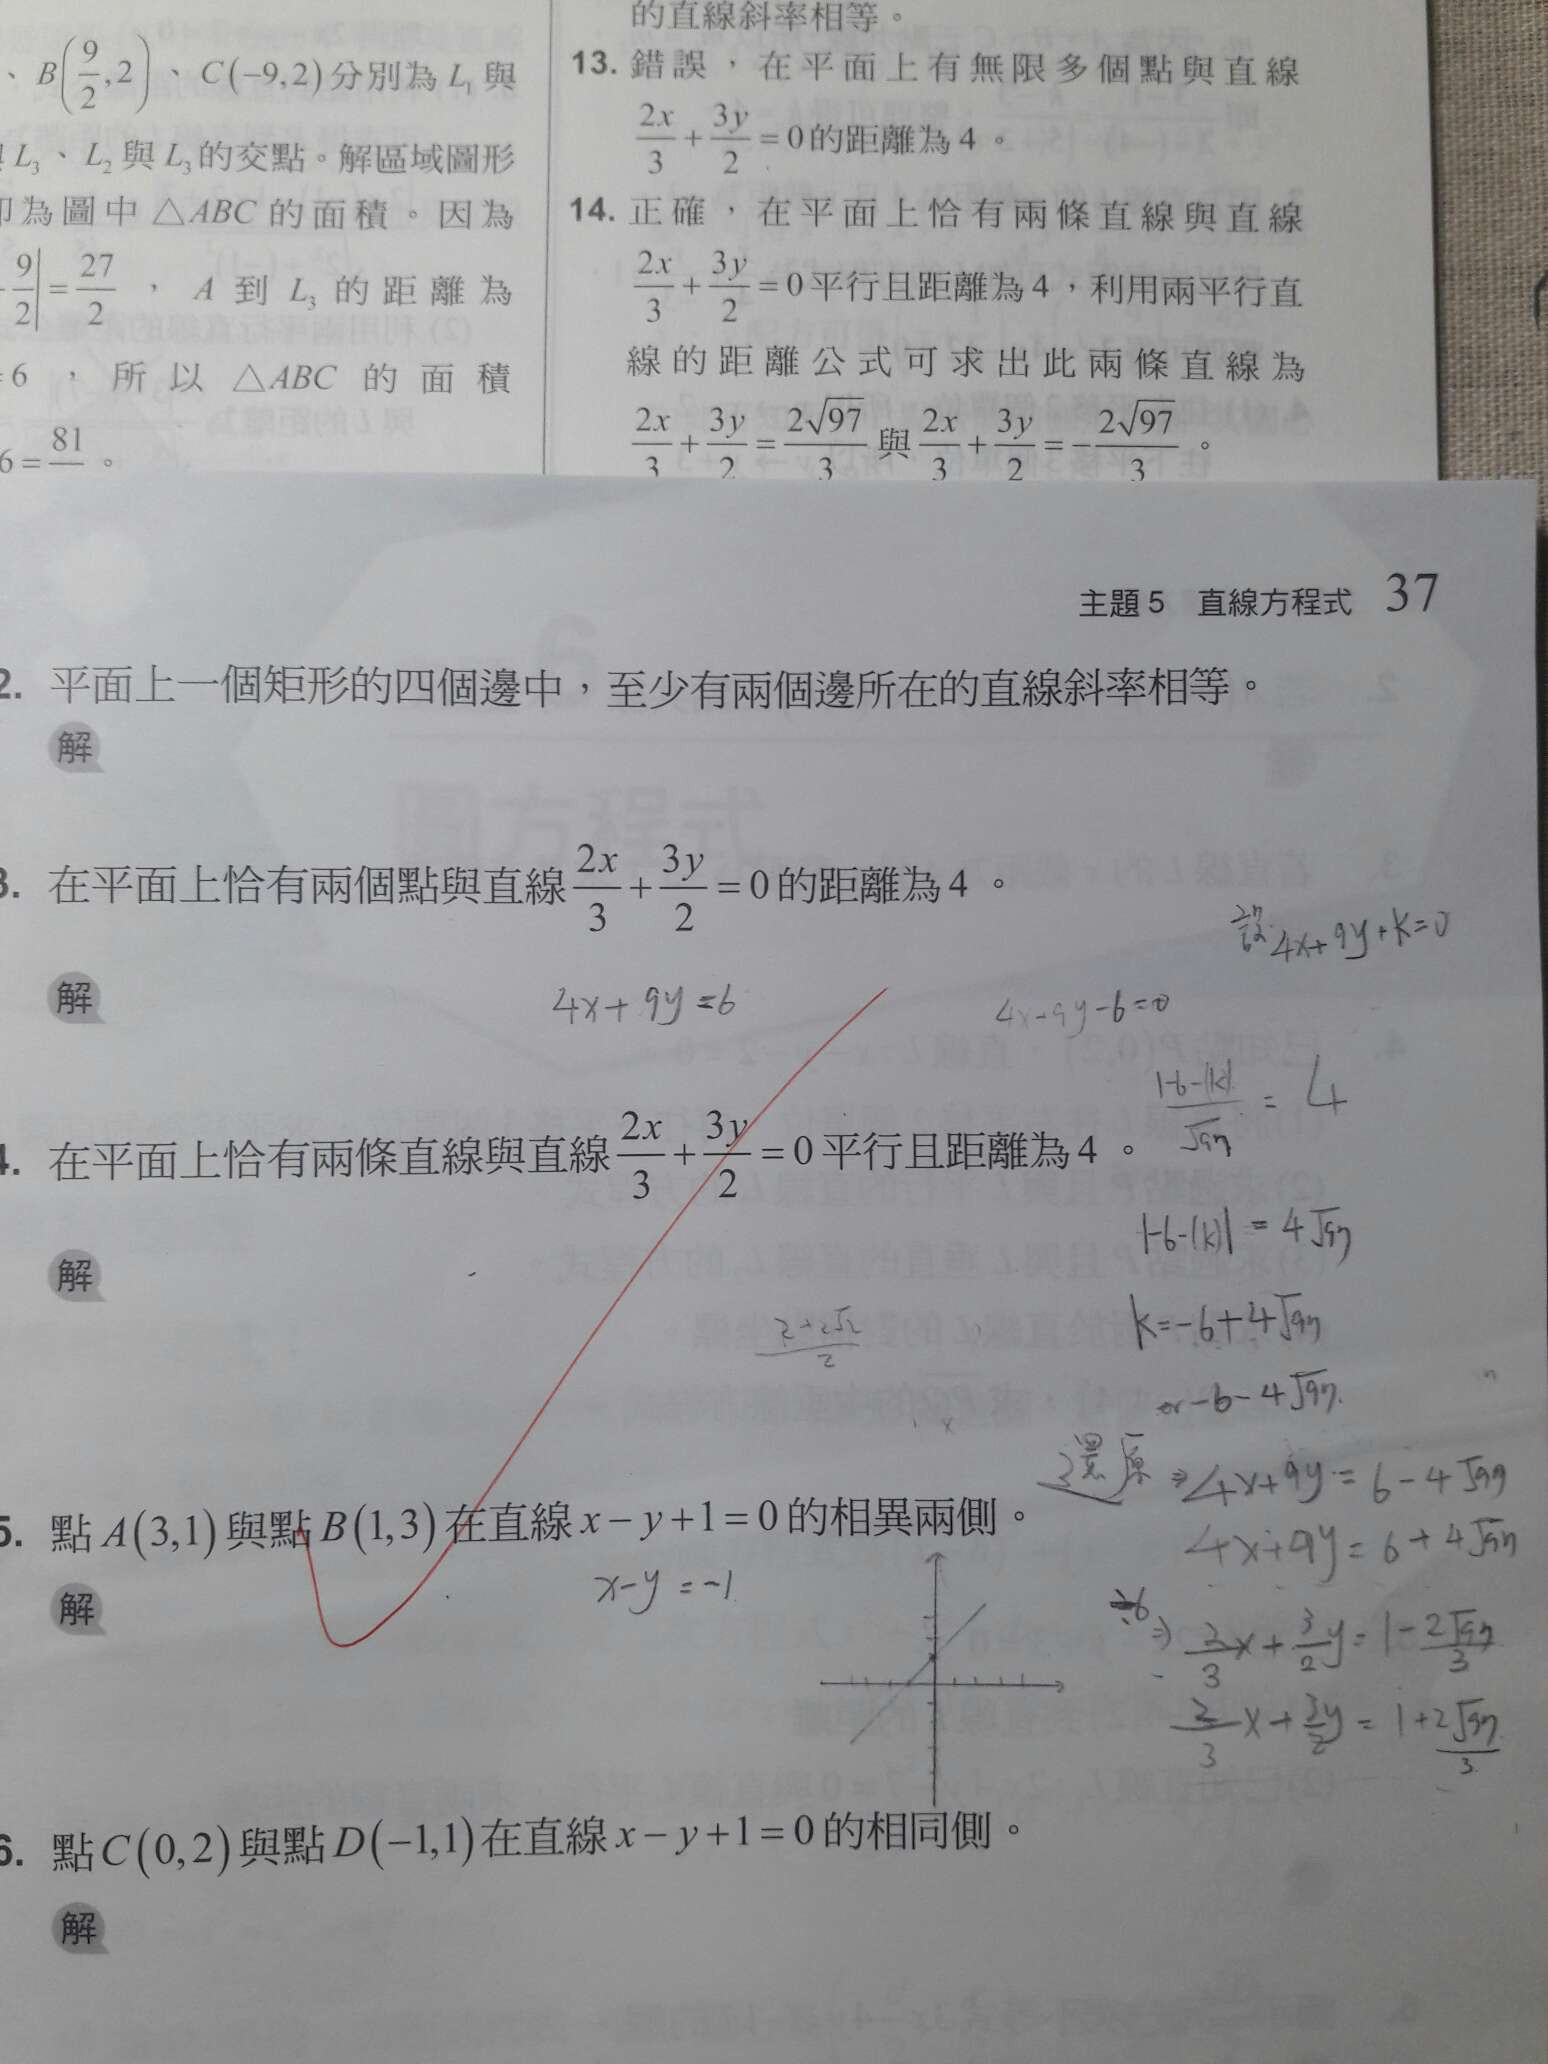 、B(9/2,2)、C(−9,2)分別為 L₁ 與
L₃、L₂與L₃的交點。解區域圖形
為圖中△ABC的面積。因為
9/2|=27/2，A 到 L₃ 的距離為
6，所以△ABC 的面積
6=81/。
的直線斜率相等。
13. 錯誤，在平面上有無限多個點與直線
2x/3+3y/2=0的距離為4。
14. 正確，在平面上恰有兩條直線與直線
2x/3+3y/2=0平行且距離為4，利用兩平行直
線的距離公式可求出此兩條直線為
2x/3+3y/2=2√97/3與2x/3+3y/2=−2√97/3。
主題5 直線方程式 37
2. 平面上一個矩形的四個邊中，至少有兩個邊所在的直線斜率相等。
解
3. 在平面上恰有兩個點與直線2x/3+3y/2=0的距離為4。
設4x+9y+k=0
解
4x+9y=6
4x+9y-6=0
|-6-(k)|/√97=4
4. 在平面上恰有兩條直線與直線2x/3+3y/2=0平行且距離為4。
|-6-(k)|=4√97
解
2+2√2/2
k=-6+4√97
or -6-4√97
還原⇒4x+9y=6-4√97
5. 點A(3,1)與點B(1,3)在直線x−y+1=0的相異兩側。
4x+9y=6+4√97
解
x-y=-1
÷6⇒2/3x+3/2y=1-2√97/3
2/3x+3/2y=1+2√97/3
6. 點C(0,2)與點D(−1,1)在直線x−y+1=0的相同側。
解